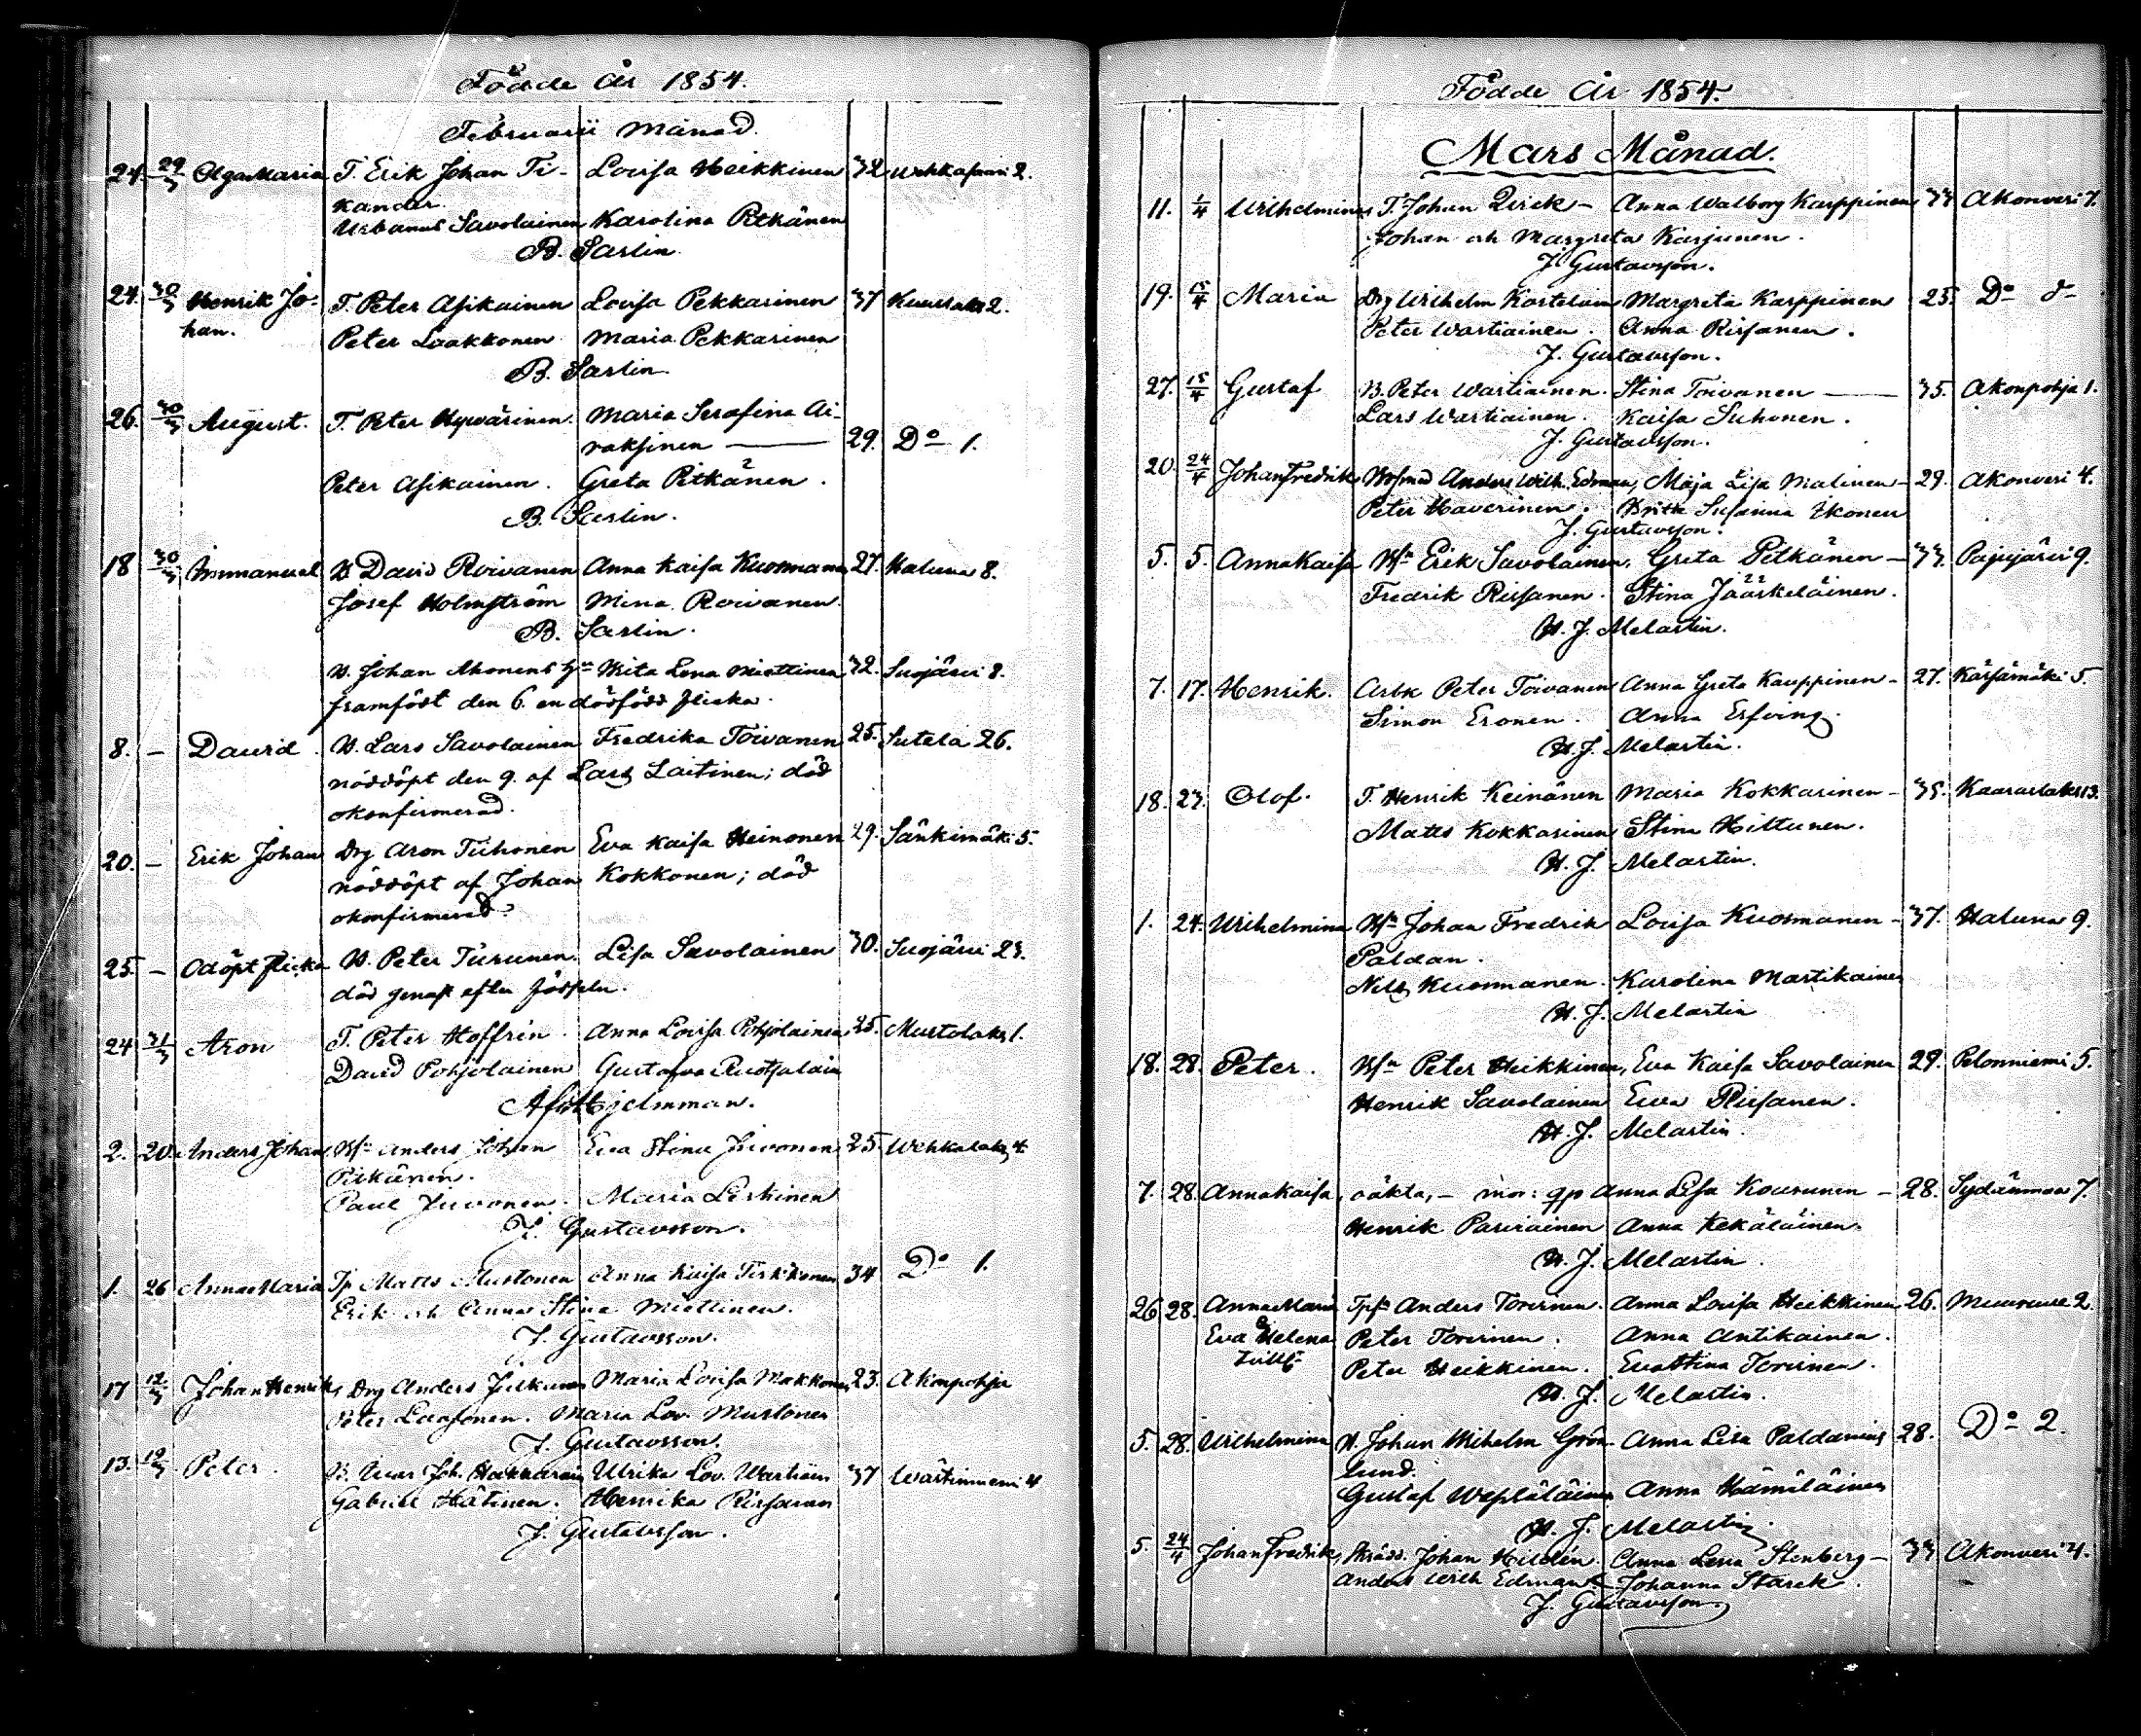 Födde År 1854.
Februarii månad.
24. 29/3 Olga Maria T. Erik Johan Ti- Lovisa Heikkinen 32 Wehkasaari 2.
kander.
Urbanus Savolainen Karolina Pitkänen
B. Sarlin.
24. 30/3 Henrik Jo- T. Peter Asikainen Lovisa Pekkarinen 37 Kuuslaks 2.
han. Peter Laakkonen Maria Pekkarinen
B. Sarlin.
26. 30/3 August. T. Peter Hyvärinen. Maria Serafina Ai-
raksinen — 29. Do 1.
Peter Asikainen. Greta Pitkänen.
B. Sarlin.
18 30/3 Immanuel B. David Roivanen Anna Kaisa Kuosmanen 27. Haluna 8.
Josef Holmström Mina Roivanen.
B. Sarlin.
B. Johan Ahonens hu Brita Lena Miettinen 32. Suojärvi 8.
framfödt den 6. en dödfödd flicka.
8. — David. B. Lars Savolainen Fredrika Toivanen 25. Sutela 26.
nöddöpt den 9. af Lars Laitinen; död
okonfirmerad.
20. — Erik Johan Drg Aron Tiihonen Eva Kaisa Heinonen 29. Sänkimäki 5.
nöddöpt af Johan Kokkonen; död
okonfirmerad.
25. — Odöpt flicka B. Peter Turunen. Lisa Savolainen 30. Suojärvi 23.
död genast efter födseln.
24 31/3 Aron T. Peter Hoffrén. Anna Lovisa Pohjolainen 25. Mustolaks 1.
David Pohjolainen Gustafva Ruotsalain
Af. Hjelmman.
2. 20. Anders Johan Bsn Anders Johan Eva Stina Juvonen 25. Wehkalaks 4.
Pitkänen.
Paul Juvonen. Maria Leskinen
J. Gustavsson.
1. 26 Anna Maria Tp Matts Mustonen Anna Kaisa Tirkkonen 34 Do 1.
Erik och Anna Stina Miettinen.
J. Gustavsson.
17 12/3 Johan Henrik, Drg Anders Julkunen Maria Lovisa Makkonen 23. Akonpohja
Peter Laasonen. Maria Lov. Mustonen
J. Gustavsson.
13. 12/3 Peter. B. Ivar Joh. Hakkarain Ulrika Lov. Wartiain 37 Wästinniemi 4
Gabriel Hätinen. Henrika Rissanen
J. Gustavsson.
Födde År 1854.
Mars Månad.
11. 1/4 Wilhelmina T. Johan Qvick — Anna Walborg Karppinen 33 Akonveri 7.
Johan och Margreta Karjunen.
J. Gustavsson.
19. 15/4 Maria Drg Wilhelm Kortelain Margreta Karppinen 25. Do do
Peter Wartiainen. Anna Rissanen.
J. Gustavsson.
27. 15/4 Gustaf B. Peter Wartiainen. Stina Toivanen — 35. Akonpohja 1.
Lars Wartiainen. Kaisa Suhonen.
J. Gustavsson.
20. 24/4 Johan Fredrik, Anders Wilh. Edman, Maja Lisa Malinen — 29. Akonveri 4.
Peter Haverinen. Britta Susanna Ikonen
J. Gustavsson.
5. 5. Anna Kaisa Bsn Erik Savolainen. Greta Pitkänen — 33. Pajujärvi 9.
Fredrik Rissanen. Stina Jääskeläinen.
H. J. Melartin.
7. 17. Henrik. Arbk Peter Toivanen Anna Greta Kauppinen — 27. Kärsämäki 5.
Simon Eronen. Anna Erfving.
H. J. Melartin.
18. 23. Olof. T. Henrik Keinänen Maria Kokkarinen — 35. Kaaraslaks 13.
Matts Kokkarinen Stina Hiltunen.
H. J. Melartin.
1. 24. Wilhelmina Bsn Johan Fredrik Lovisa Kuosmanen — 37. Haluna 9.
Paldan.
Nils Kuosmanen. Karolina Martikainen
H. J. Melartin
18. 28. Peter. Bsn Peter Heikkinen, Eva Kaisa Savolainen 29. Pelonniemi 5.
Henrik Savolainen Eva Rissanen.
H. J. Melartin.
7. 28. Anna Kaisa, oäkta, — mor: qp Anna Lisa Kourunen — 28. Sydänmaa 7.
Henrik Pasivainen Anna Kekäläinen.
H. J. Melartin.
26 28. Anna Maria Tpsn Anders Torvinen. Anna Lovisa Heikkinen 26. Muuruve 2.
& Eva Helena Peter Torvinen. Anna Antikainen.
tvill. Peter Heikkinen. Eva Stina Torvinen.
H. J. Melartin.
5. 28. Wilhelmina B. Johan Wilhelm Grön- Anna Lisa Paldanius 28. Do 2.
lund.
Gustaf Wepsäläinen Anna Hämäläinen
H. J. Melartin.
5. 24/4 Johan Fredrik, Skrädd. Johan Hildén. Anna Lena Stenberg — 33 Akonveri 4.
Anders Wilh Edman & Johanna Starck.
J. Gustavsson.